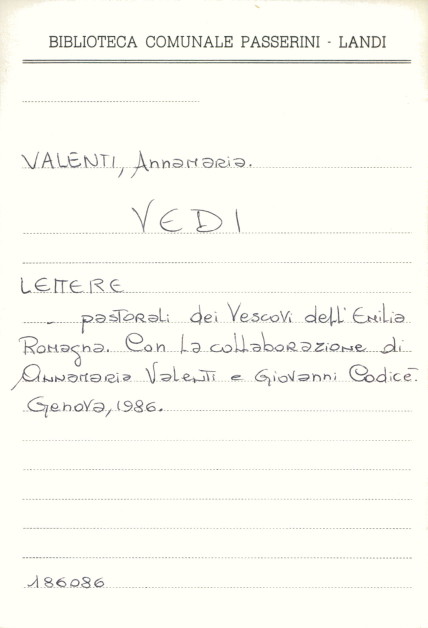 BIBLIOTECA COMUNALE PASSERINI - LANDI
VALENTI, Annamaria.
VEDI
LETTERE
- pastorali dei Vescovi dell'Emilia
Romagna. Con la collaborazione di
Annamaria Valenti e Giovanni Codicè.
Genova, 1986.
186086